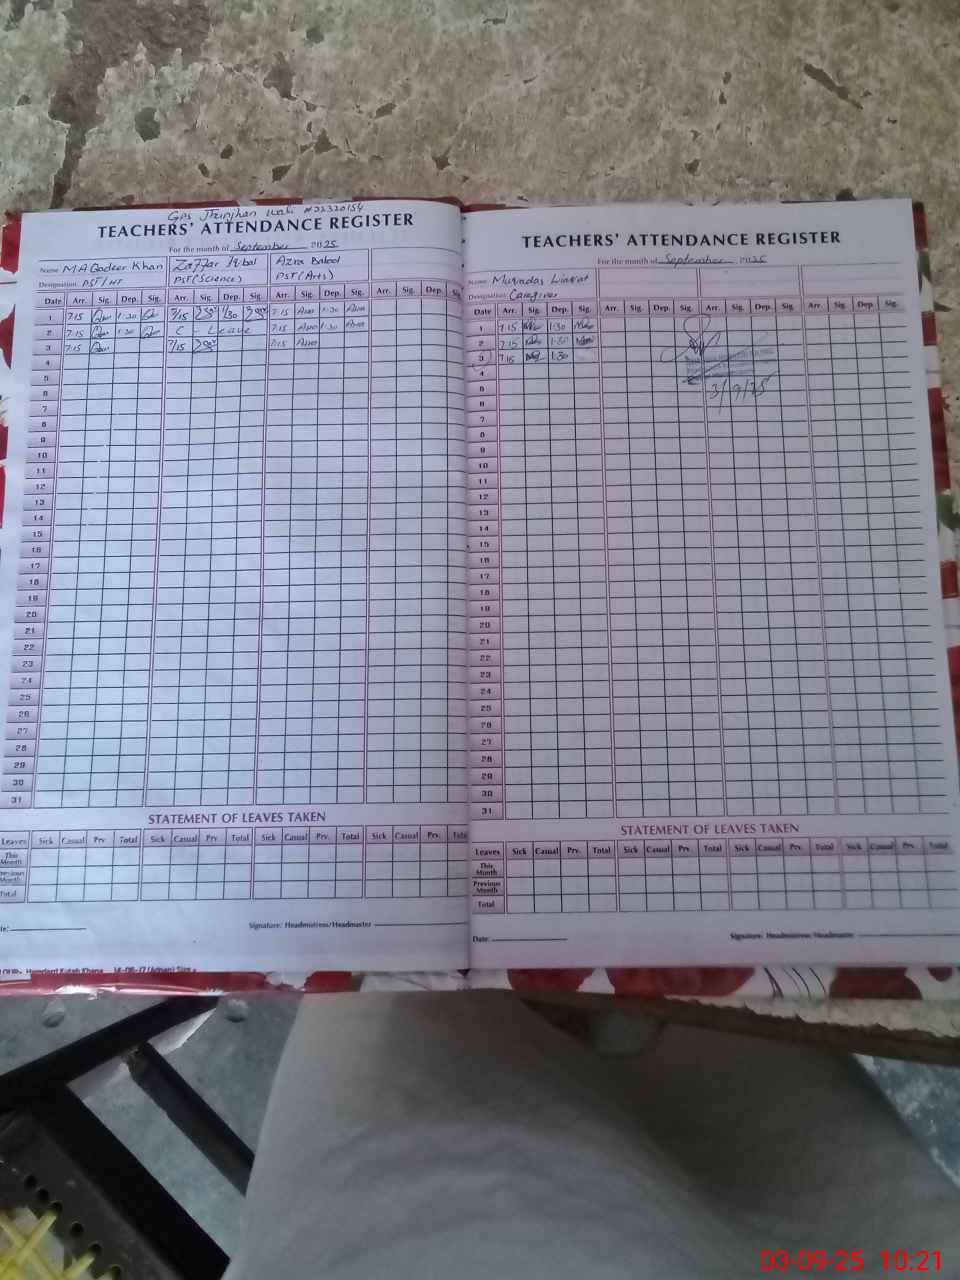 GPS Jhinjhan wali #32320154
TEACHERS' ATTENDANCE REGISTER
For the month of September 2025
Name M.A Qadeer Khan Zaffar Iqbal Azra Batool
Designation PST/HT PST(Science) PST(Arts)
Date Arr. Sig. Dep. Sig. Arr. Sig. Dep. Sig. Arr. Sig. Dep. Sig. Arr. Sig. Dep. Sig.
1 7:15 1:30 7/15 1:30 7:15 1:30
2 7:15 1:30 C - Leave 7:15 1:30
3 7:15 7/15 7:15
4
5
6
7
8
9
10
11
12
13
14
15
16
17
18
19
20
21
22
23
24
25
26
27
28
29
30
31
STATEMENT OF LEAVES TAKEN
Leaves Sick Casual Prv Total Sick Casual Prv Total Sick Casual Prv. Total Sick Casual Prv. Tota
This Month
Previous Month
Total
te: Signature: Headmistress/Headmaster
TEACHERS' ATTENDANCE REGISTER
For the month of September 2025
Name Designation Caregiver
Date Arr. Sig. Dep. Sig. Arr. Sig. Dep. Sig. Arr. Sig. Dep. Sig. Arr. Sig. Dep. Sig.
1 7:15 1:30
2 7:15 1:30
3 7:15 1:30
3/9/25
4
5
6
7
8
9
10
11
12
13
14
15
16
17
18
19
20
21
22
23
24
25
26
27
28
29
30
31
STATEMENT OF LEAVES TAKEN
Leaves Sick Casual Prv. Total Sick Casual Prv. Total Sick Casual Prv. Total Sick Casual Prv. Total
This Month
Previous Month
Total
Date: Signature: Headmistress/Headmaster
03-09-25 10:21